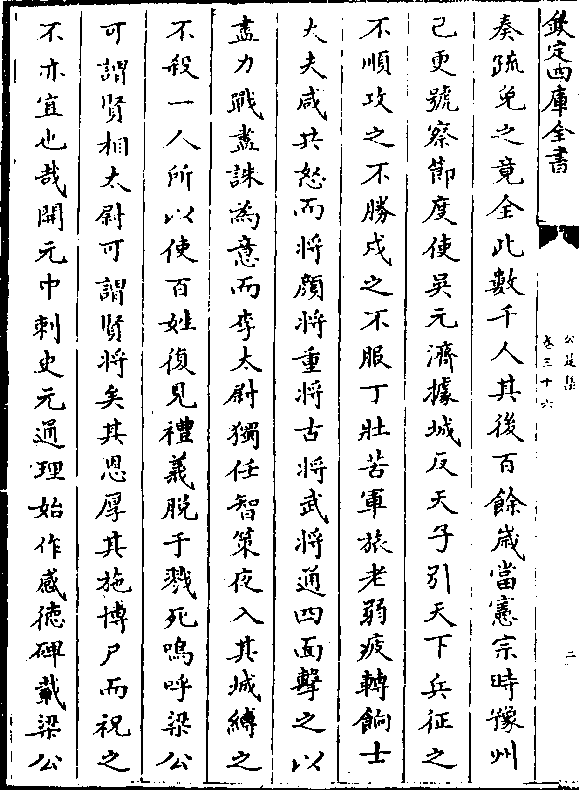 欽定四庫全書
公是集
卷三十六
二
奏疏免之竟全此數千人其後百餘歲當憲宗時豫州
已更號察節度使吳元濟據城反天子引天下兵征之
不順攻之不勝戍之不服丁壯苦軍旅老弱疲轉餉士
大夫咸共怒而將顔將重將古將武將通四面擊之以
盡力戰盡誅為意而李太尉獨任智策夜入其城縛之
不殺一人所以使百姓復見禮義脫于戮死嗚呼梁公
可謂賢相太尉可謂賢將矣其恩厚其施博尸而祝之
不亦宜也哉開元中刺史元通理始作感德碑載梁公